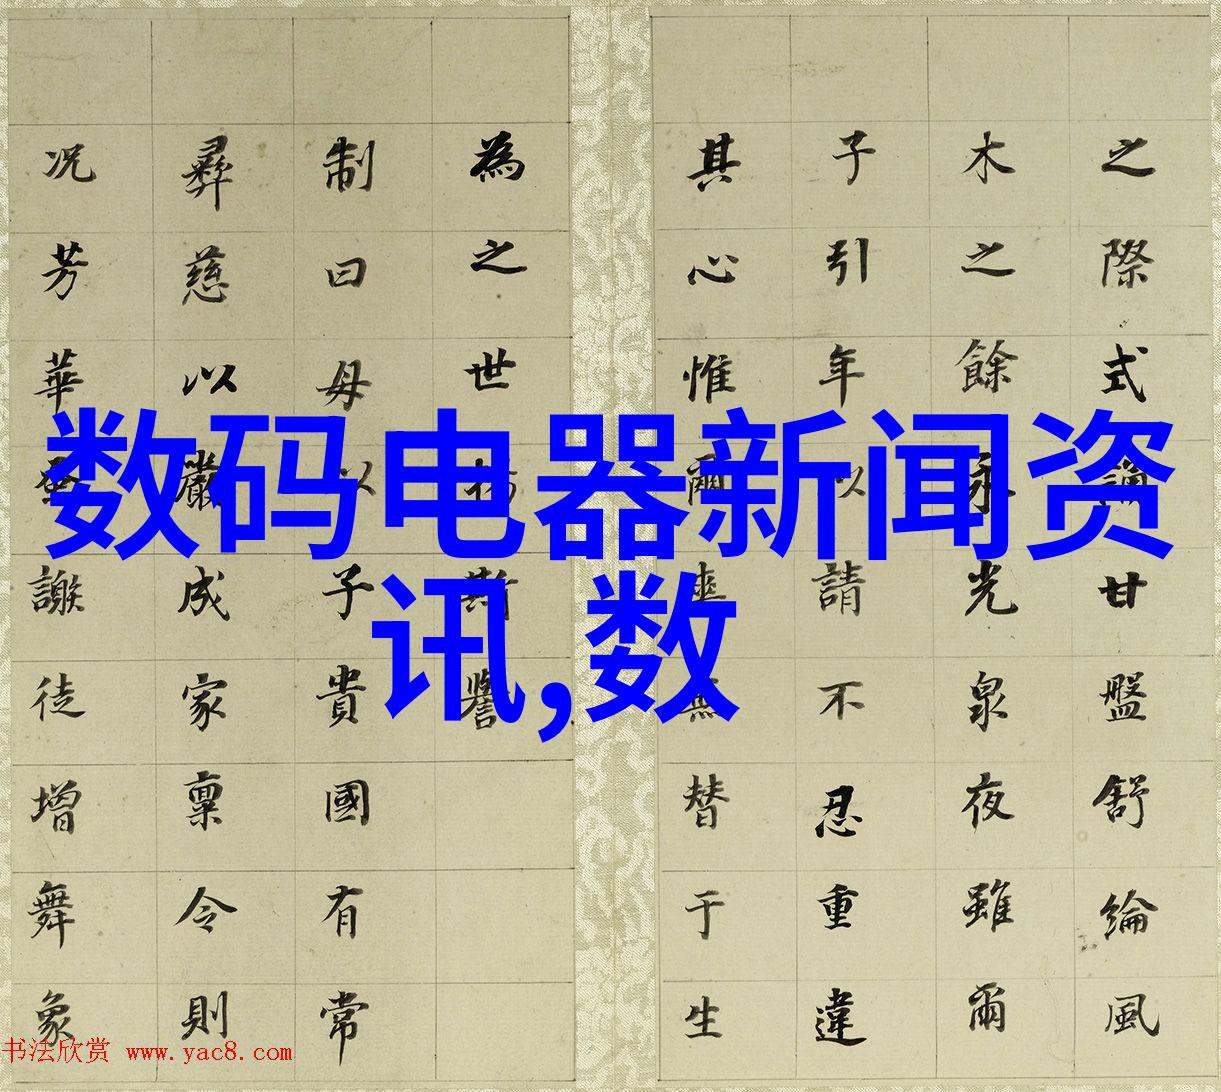 之際式論甘盤舒綸風
木之餘光泉夜雖爾
子引年以請不忍重違
其心惟爾無替于生
為之世斯譽
制曰母以子貴國有常
彝慈以嚴成家稟令則
況芳華謝徒增舞象
数码电器新闻资
讯,数
书法欣赏 www.yac8.com